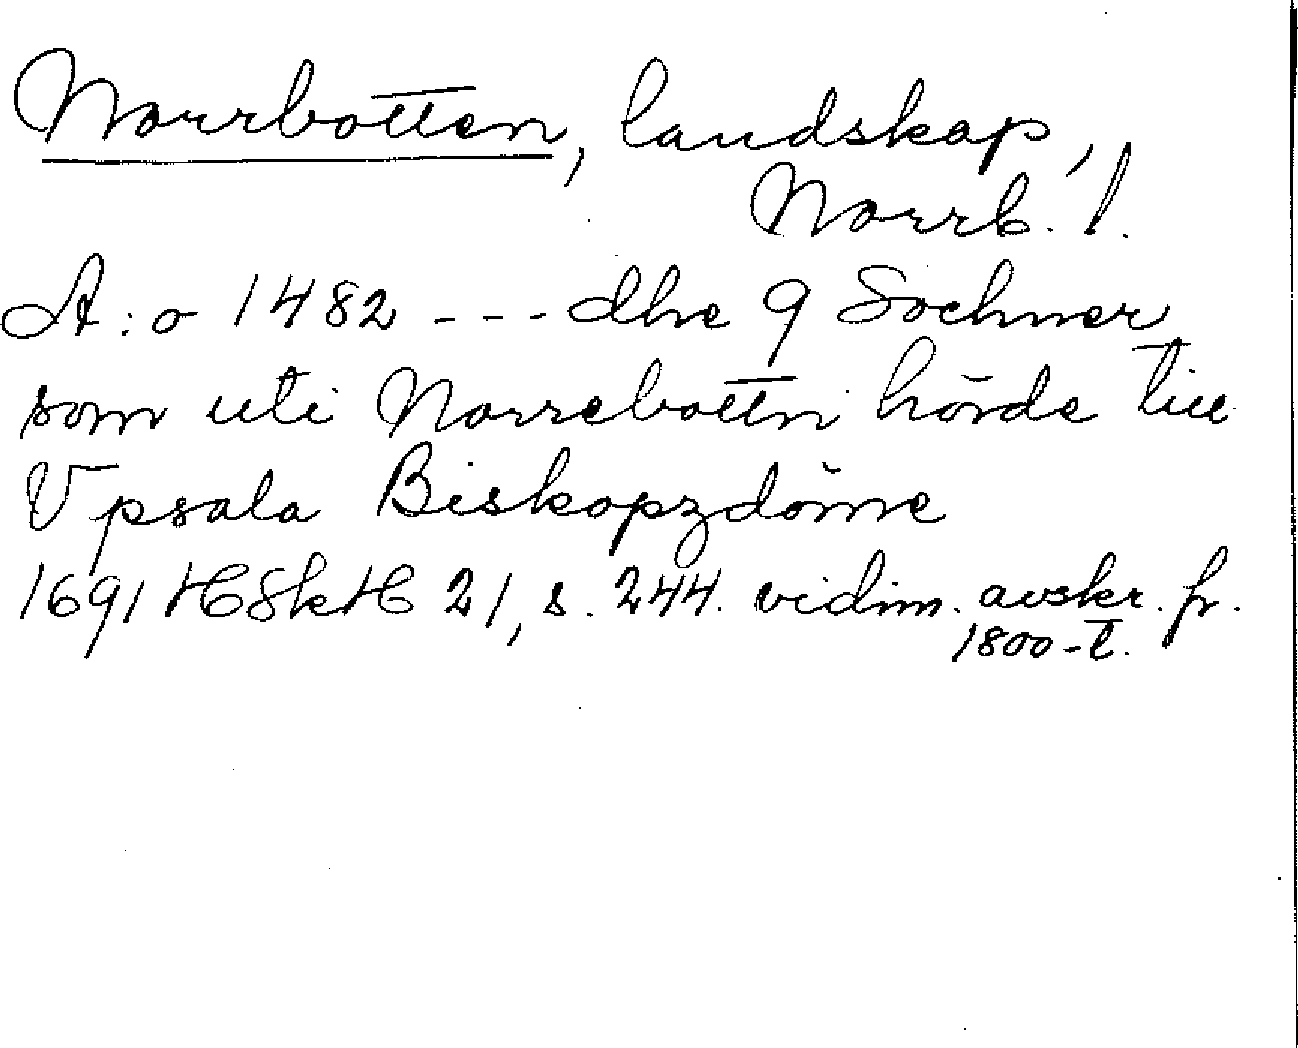 Norrbotten, landskap,
Norrb. l.
A:o 1482 --- dhe 9 Sochner
som uti Norrebottn hörde till
Vpsala Biskopzdöme
1691 HSkH 21, s. 244. vidim. avskr. fr.
1800-t.